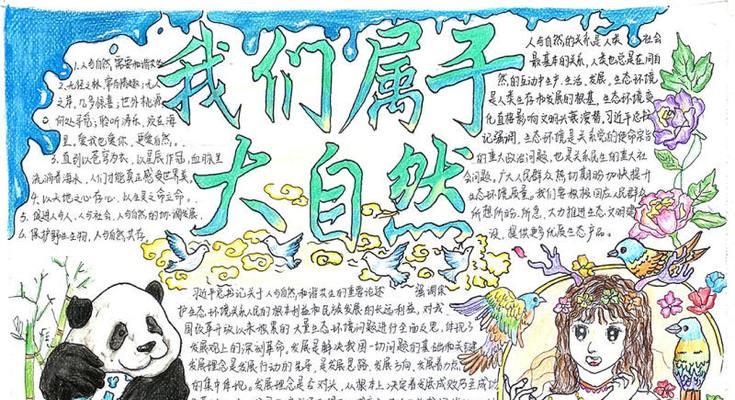 我们属于
大自然
1.人与自然，需要和谐共生
2.无径之林，常有情趣；无人
之岸，几多惊喜；世外桃源
何处寻觅；聆听涛乐，须在海
里，爱我也爱你，更爱自然。
3.直到以苍穹为衣，以星辰作冠，血脉里
流淌着海水，人们才能真正感受世界美。
4.以天地之心存心，以生灵之命立命。
5.促进人与人，人与社会，人与自然的协调发展。
6.保护野生生物，人与自然共存
人与自然的关系是人类社会
最基本的关系，人类也总是在同自
然的互动中生产、生活、发展。生态环境
是人类生存和发展的根基，生态环境变
化直接影响文明兴衰演替。习近平总书
记强调，生态环境是关系党的使命宗旨
的重大政治问题，也是关系民生的重大社
会问题。广大人民群众热切期盼加快提升
生态环境质量。我们要积极回应人民群众
所想所盼所急，大力推进生态文明建
设，提供更多优质生态产品。
习近平总书记关于人与自然和谐共生的重要论述 强调保
护生态环境关系人民的根本利益和民族发展的长远利益，对我
国改革开放以来积累的大量生态环境问题进行全面反思，体现了
发展观上的深刻革命。发展是解决我国一切问题的基础和关键
发展理念是发展行动的先导，是发展思路、发展方向、发展着力点
的集中体现。发展理念是否对头，从根本上决定着发展成效乃至成功